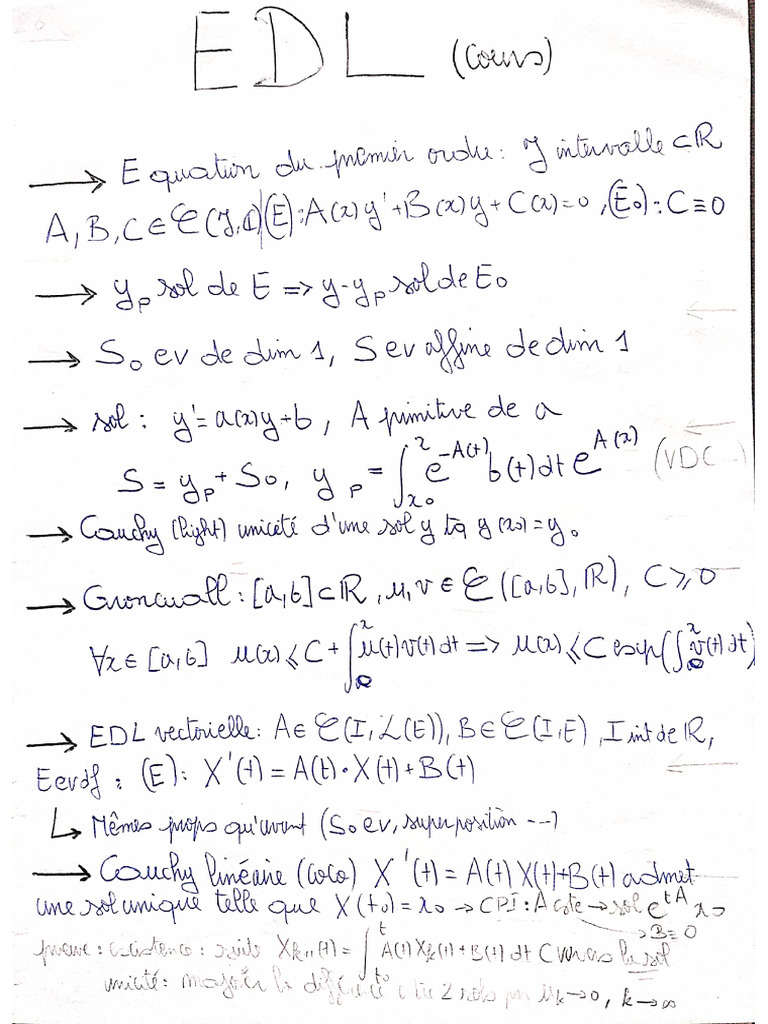 EDL (cours)
→ Equation du premier ordre: J intervalle ⊂ ℝ
A, B, C ∈ C(J, ℂ) | (E): A(x)y' + B(x)y + C(x) = 0, (E0): C ≡ 0
→ yp sol de E => y-yp sol de E0
→ S0 ev de dim 1, S ev affine de dim 1
→ sol: y' = a(x)y + b, A primitive de a
S = yp + S0, yp = ∫_{x0}^{x} e^{-A(t)} b(t) dt e^{A(x)} (VDC
→ Cauchy (light) unicité d'une sol y tq y(x0) = y0
→ Gronwall: [a,b] ⊂ ℝ, u, v ∈ C([a,b], ℝ), C ⩾ 0
∀x ∈ [a,b] u(x) ⩽ C + ∫^{x} u(t)v(t) dt => u(x) ⩽ C exp(∫^{x} v(t) dt)
→ EDL vectorielle: A ∈ C(I, L(E)), B ∈ C(I, E), I int de ℝ,
E evdf: (E): X'(t) = A(t)·X(t) + B(t)
↳ Mêmes props qu'avant (S0 ev, superposition ---)
→ Cauchy linéaire (coco) X'(t) = A(t)X(t) + B(t) admet
une sol unique telle que X(t0) = x0 → CPI: A cste → sol e^{tA} x0
→ B ≡ 0
preuve: existence: suite X_{k+1}(t) = ∫_{t0}^{t} A(t) Xk(t) + B(t) dt CV vers la sol
unicité: majorer la différence 2 sols par uk → 0, k → ∞